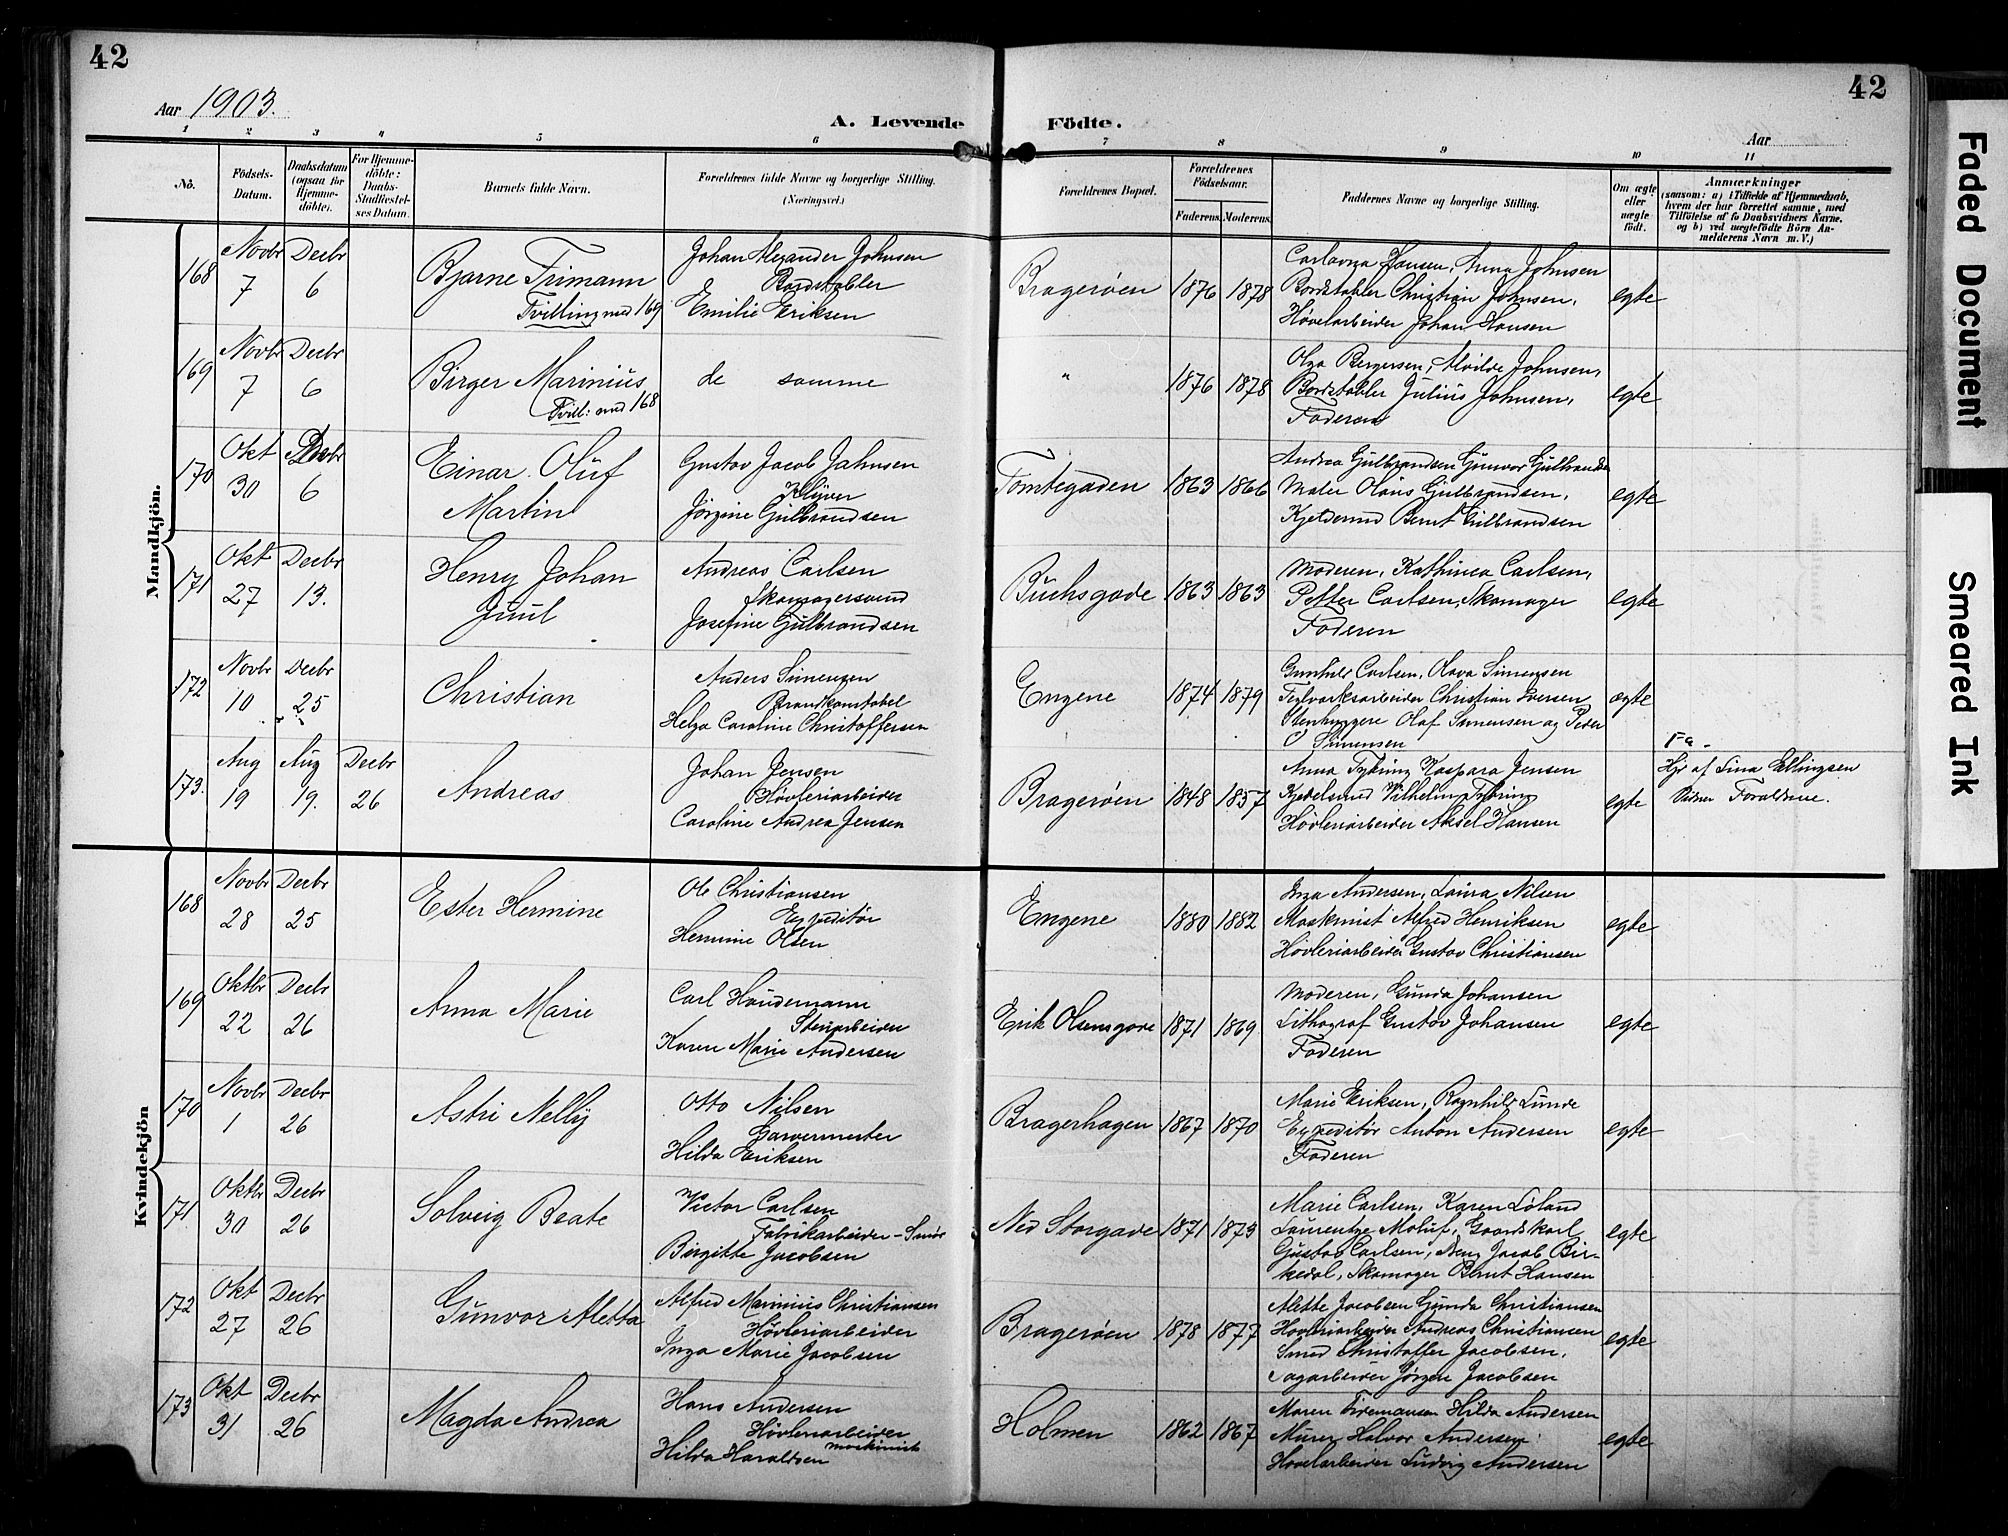 42
42
Aar 1903.
A. Levende Födte.
Aar
1 2 3 4 5 6 7 8 9 10 11
No.
Födsels-Datum.
Daabsdatum (ogsaa for Hjemme-döbte).
For Hjemme-döbte: Daabs-Stadfæstel-ses Datum.
Barnets fulde Navn.
Forældrenes fulde Navne og borgerlige Stilling. (Næringsvei.)
Forældrenes Bopæl.
Forældrenes Födselsaar.
Faderens. Moderens.
Faddernes Navne og borgerlige Stilling.
Om ægte eller uægte födt.
Anmærkninger
(saasom: a) i Tilfælde af Hjemmedaab,
hvem der har forrettet samme, med
Tilföielse af to Daabsvidners Navne,
og b) ved uægtefödte Börn An-
melderens Navn m. V.)
Mandkjön.
168
Novbr 7
Decbr 6
Bjarne Trimann
Tvilling med 169
Johan Alexander Johnsen
Bordstabler
Emilie Eriksen
Bragerøen
1876 1878
Hansen, Anna Johnsen
Bordstabler Christian Johnsen,
Høvelarbeider Johan Hansen
egte
169
Novbr 7
Decbr 6
Birger Marinius
Tvill: med 168
de samme
"
1876 1878
Olga Bergersen, Alvilde Johnsen,
Bordstabler Julius Johnsen,
Faderen
egte
170
Okt 30
Decbr 6
Einar Oluf
Martin
Gustav Jacob Jahnsen
Jørgine Gulbrandsen
Tomtegaden
1863 1866
Andrea Gulbrandsen Gunvor Gulbrandsen
Maler Olaus Gulbrandsen,
Kjelsmed Bernt Gulbrandsen
egte
171
Okt 27
Decbr 13.
Henry Johan
Juul
Andreas Carlsen
Skomagersvend
Josefine Gulbrandsen
Buchsgade
1863 1863
Moderen, Kathinca Carlsen,
Petter Carlsen, Skomager
Faderen
egte
172
Novbr 10
Decbr 25
Christian
Anders Simensen
Brandkonstabel
Helga Caroline Christoffersen
Engene
1874 1879
Gunhild Carlsen, Olava Simensen
Teglværksarbeider Christian Iversen
Stenhuggere Olaf Simensen og Peder
Simensen
ægte
173.
Aug 19
Aug 19.
Decbr 26
Andreas
Johan Jensen
Høvleriarbeider
Caroline Andrea Jensen
Bragerøen
1848 1857
Anna Tybring Kaspara Jensen
Kjedelsmed Vilhelm Tybring
Høvleriarbeider Aksel Hansen
egte
Hjd af Lina Ellingsen
Vidner Forældrene.
Kvindekjön
168
Novbr 28
Decbr 25
Ester Hermine
Ole Christiansen
Expeditør
Hermine Olsen
Engene
1880 1882
Inga Andersen, Laura Nilsen
Maskinist Alfred Henriksen
Høvleriarbeider Gustav Christiansen
egte
169
Oktbr 22
Decbr 26
Anna Marie
Carl Haudemann
Stenarbeider
Karen Marie Andersen
Erik Olsensgade
1871 1869
Moderen, Gunda Johansen
Lithograf Gustav Johansen
Faderen
egte
170
Novbr 1
Decbr 26
Astri Nelly
Otto Nilsen
Garvermester
Hilda Eriksen
Bragerhagen
1867 1870
Marie Eriksen, Ragnhild Lunde
Expeditør Anton Andersen
Faderen
egte
171
Oktbr 30
Decbr 26
Solveig Beate
Victor Carlsen
Fabrikarbeider - Smør
Birgitte Jacobsen
Ned Storgade
1871 1873
Marie Carlsen, Karen Løland
Laurentze Moluf, Gaardskarl
Gustav Carlsen, Jacob Bir-
kedal, Skomager Bernt Hansen
egte
172
Okt 27
Decbr 26
Gunvor Aletta
Alfred Marinius Christiansen
Høvleriarbeider
Inga Marie Jacobsen
Bragerøen
1878 1877
Alette Jacobsen Gunda Christiansen
Høvleriarbeider Andreas Christiansen
Smed Christoffer Jacobsen,
Sagarbeider Jørgen Jacobsen
egte
173
Okt 31
Decbr 26
Magda Andrea
Hans Andersen
Høvleriarbeider
maskinist
Hilda Haraldsen
Holmen
1862 1867
Maren Hilda Andersen
Murer Halvor Andersen
Høvelarbeider Ludvig Andersen
egte
Faded Document
Smeared Ink